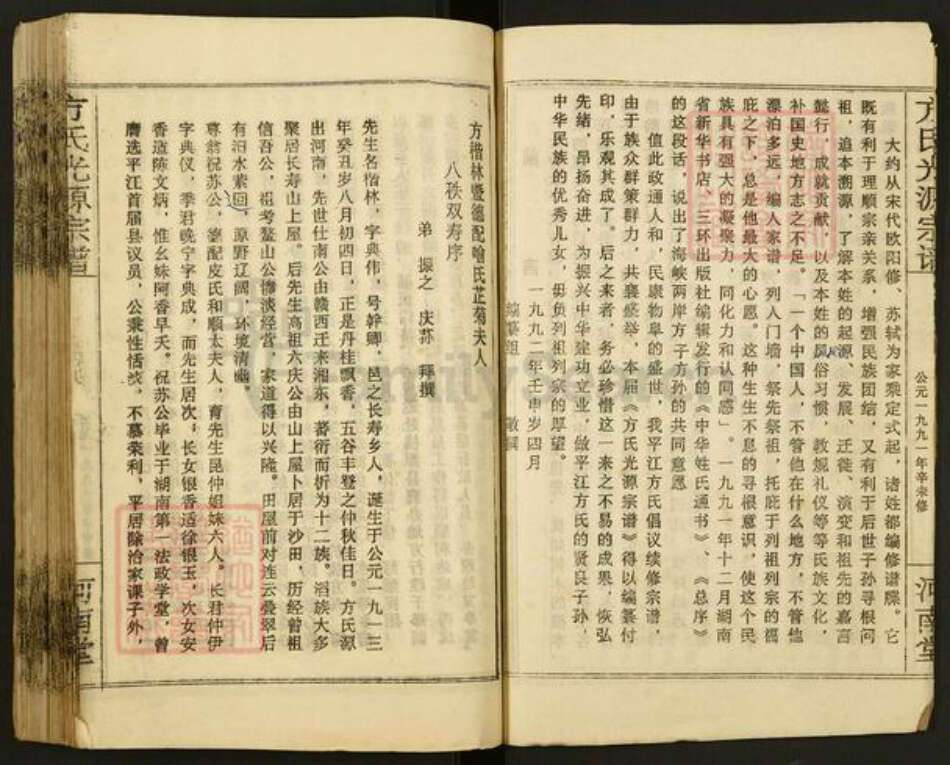 方氏光源宗谱
公元一九九一年辛未修
河南堂
大约从宋代欧阳修、苏轼为家乘定式起，诸姓都编修谱牒。它
既有利于理顺宗亲关系，增强民族团结，又有利于后世子孙寻根问
祖，追本溯源，了解本姓的起源、发展、迁徙、演变和祖先的嘉言
懿行，成就贡献，以及本姓的风俗习惯，教规礼仪等等氏族文化，
补国史地方志之不足。「一个中国人，不管他在什么地方，不管他
漂泊多远，编人家谱，列人门墙，祭先祭祖，托庇于列祖列宗的福
庇之下，总是他最大的心愿。这种生生不息的寻根意识，使这个民
族具有强大的凝聚力，同化力和认同感」。一九九一年十二月湖南
省新华书店、三环出版社编辑发行的《中华姓氏通书》、《总序》
的这段话，说出了海峡两岸方子方孙的共同意愿
值此政通人和，民康物阜的盛世，我平江方氏倡议续修宗谱，
由于族众群策群力，共襄盛举，本届《方氏光源宗谱》得以编纂付
印，乐观其成了。后之来者，务必珍惜这一来之不易的成果，恢弘
先绪，昂扬奋进，为振兴中华建功立业，做平江方氏的贤良子孙，
中华民族的优秀儿女，毋负列祖列宗的厚望。
一九九二年壬申岁四月
编纂组 敬撰
方楷林暨德配喻氏芷菊夫人
八秩双寿序
弟 振之 庆荪 拜撰
先生名楷林，字典伟，号幹卿，邑之长寿乡人，诞生于公元一九一三
年癸丑岁八月初四日，正是丹桂飘香，五谷丰登之仲秋佳日。方氏源
出河南，先世仕南公由赣西迁来湘东，蕃衍而析为十二族。滔族大多
聚居长寿山上屋。后先生高祖六庆公由山上屋卜居于沙田，历经曾祖
信吾公，祖考鳌山公惨淡经营，家道得以兴隆。田屋前对连云叠翠后
有汨水萦回，原野辽阔，环境清幽。
尊翁祝苏公，德配皮氏和顺太夫人，育先生昆仲姐妹六人。长君仲伊
字典仪，季君晚宁字典成，而先生居次；长女银香适徐银玉，次女安
香适陈文炳，惟幺妹阿香早夭。祝苏公毕业于湖南第一法政学堂，曾
膺选平江首届县议员，公秉性恬淡，不慕荣利，平居除治家课子外，
方氏光源宗谱
河南堂